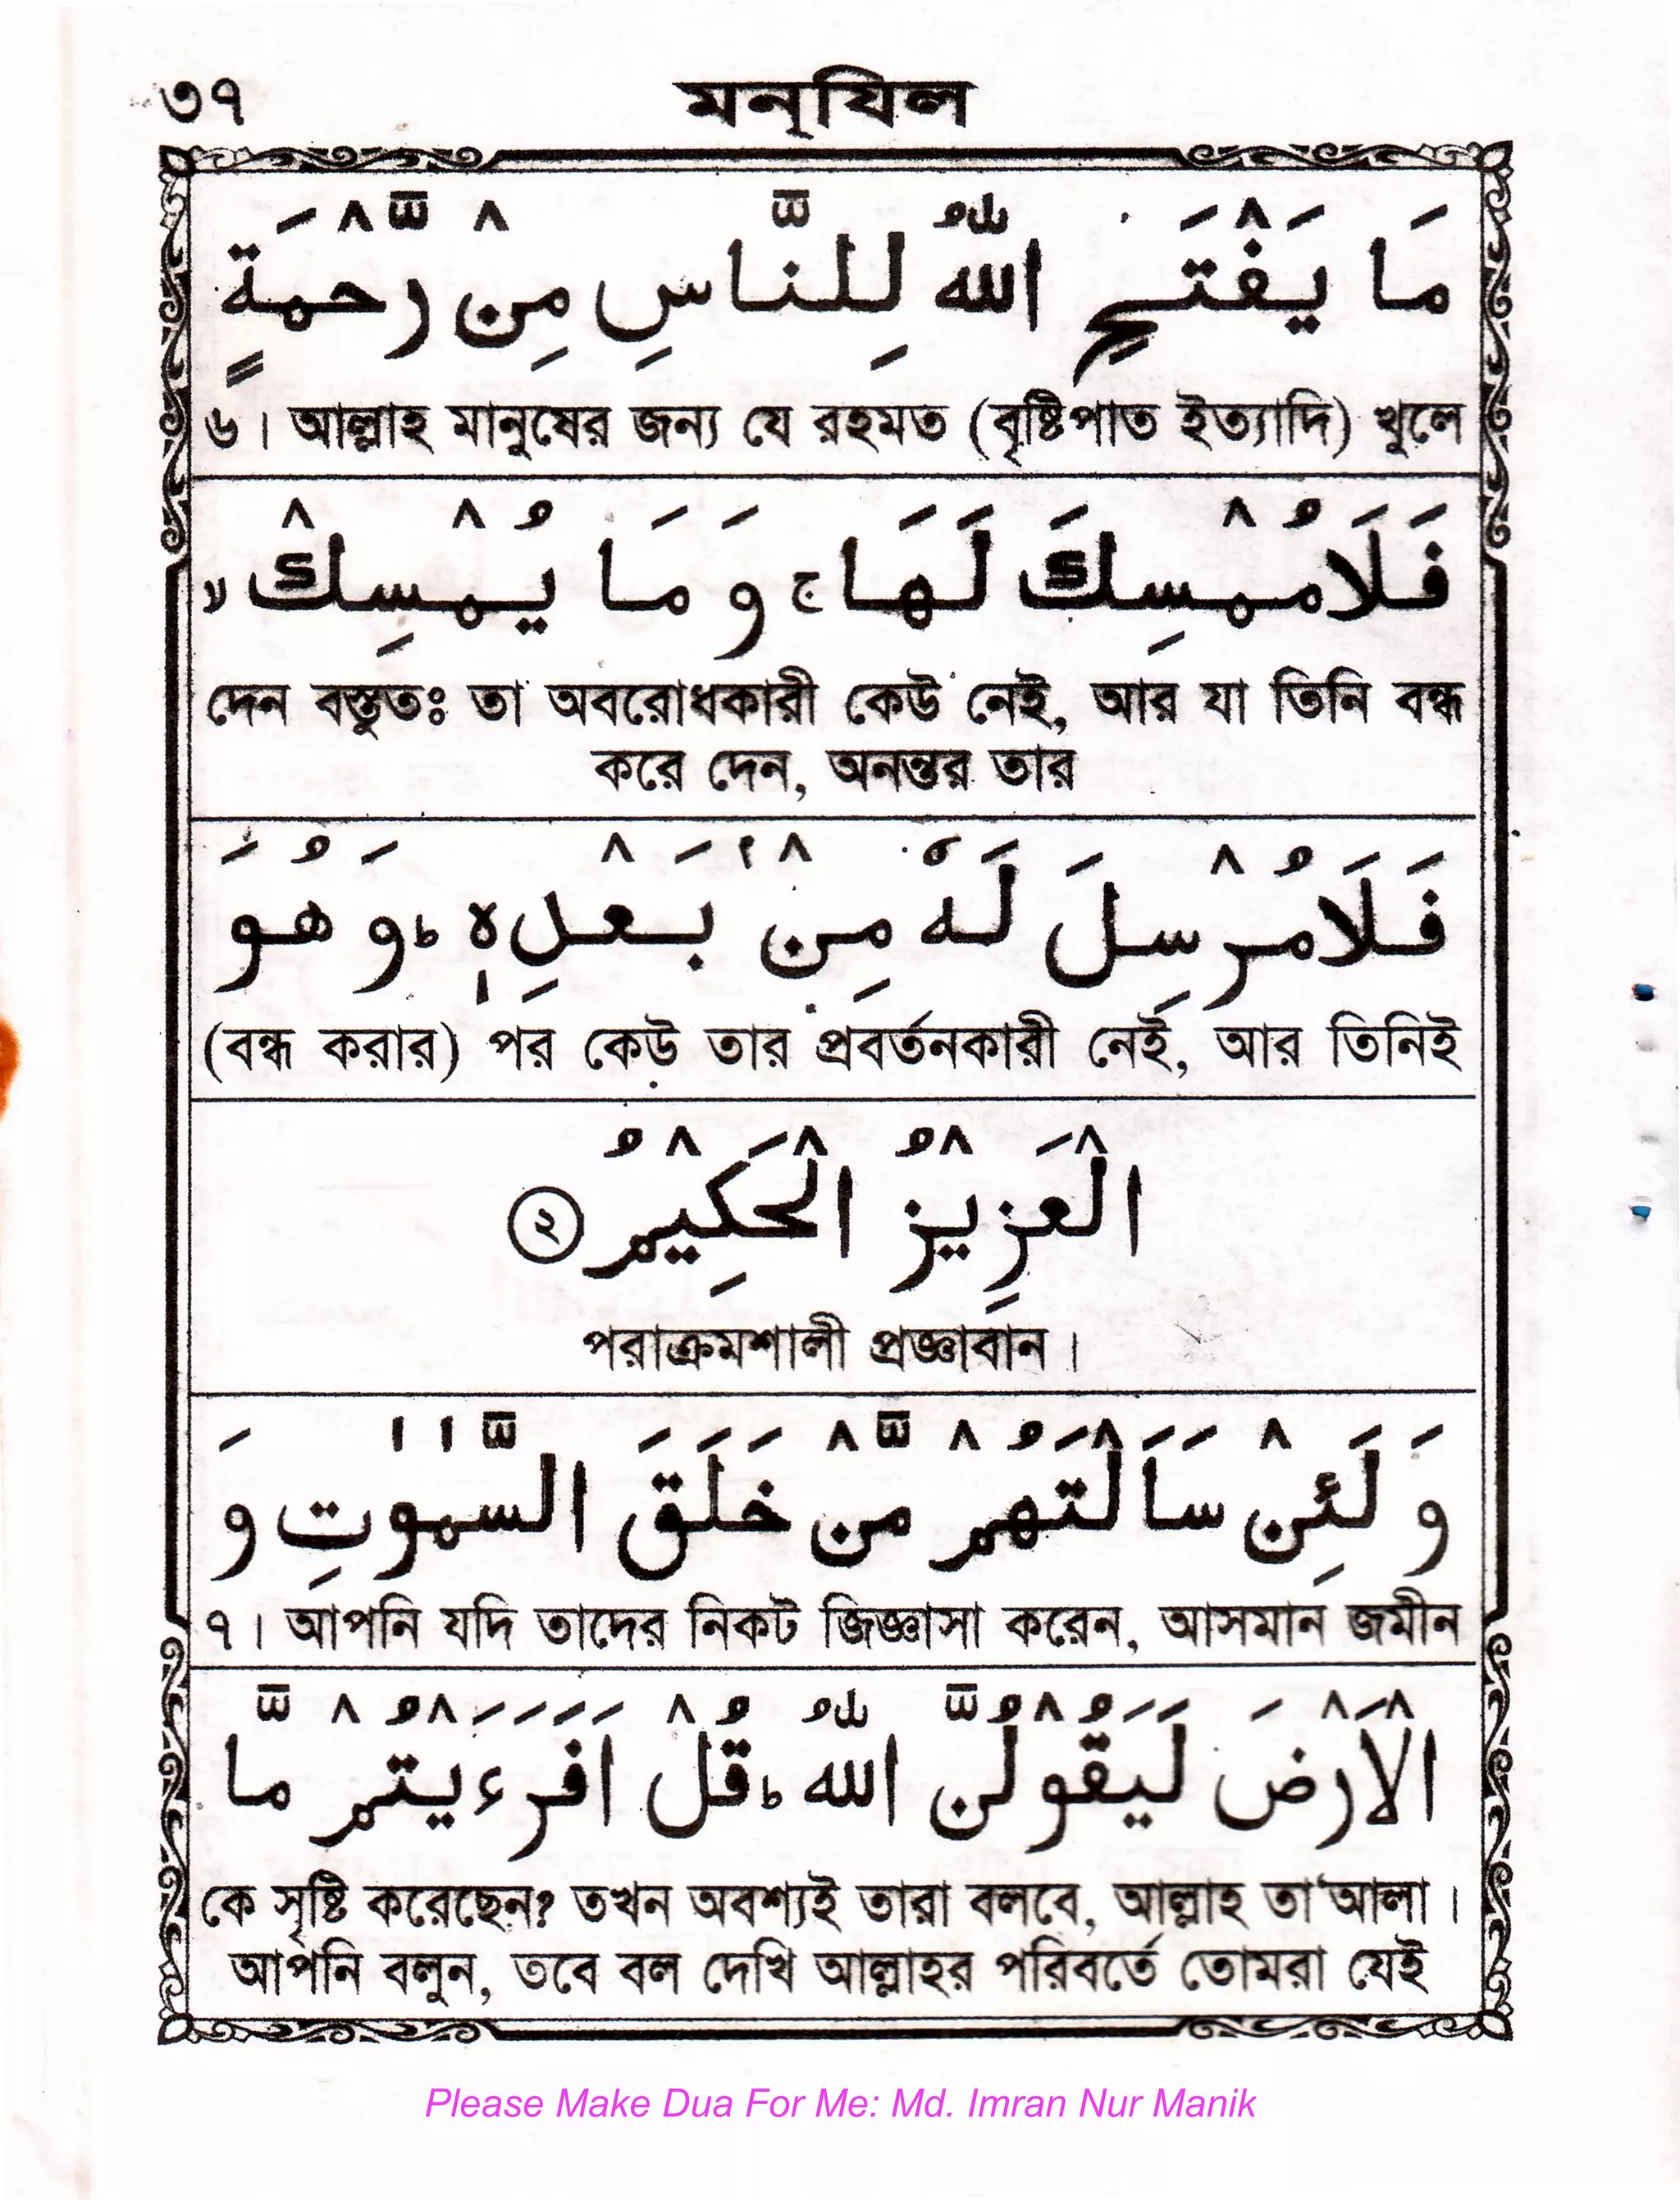 ৩৭
মন্‌যিল
مَا يَفْتَحِ اللّٰهُ لِلنَّاسِ مِنْ رَّحْمَةٍ
৬। আল্লাহ মানুষের জন্য যে রহমত (বৃষ্টিপাত ইত্যাদি) খুলে
فَلَا مُمْسِكَ لَهَا ج وَ مَا يُمْسِكْ لا
দেন বস্তুতঃ তা অবরোধকারী কেউ নেই, আর যা তিনি বন্ধ
করে দেন, অনন্তর তার
فَلَا مُرْسِلَ لَهٗ مِنْۢ بَعْدِهٖ ط وَ هُوَ
(বন্ধ করার) পর কেউ তার প্রবর্তনকারী নেই, আর তিনিই
الْعَزِيْزُ الْحَكِيْمُ ٢
পরাক্রমশালী প্রজ্ঞাবান।
وَ لَئِنْ سَاَلْتَهُمْ مَّنْ خَلَقَ السَّمٰوٰتِ وَ
৭। আপনি যদি তাদের নিকট জিজ্ঞাসা করেন, আসমান জমীন
الْاَرْضَ لَيَقُوْلُنَّ اللّٰهُ ط قُلْ اَفَرَءَيْتُمْ مَّا
কে সৃষ্টি করেছেন? তখন অবশ্যই তারা বলবে, আল্লাহ তা'আলা।
আপনি বলুন, তবে বল দেখি আল্লাহর পরিবর্তে তোমরা যেই
Please Make Dua For Me: Md. Imran Nur Manik